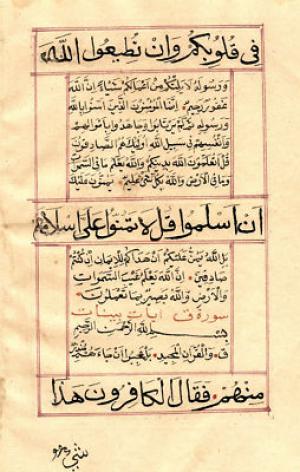 في قلوبكم وان تطيعوا الله
ورسوله لا يلتكم من اعمالكم شيئا ان الله
غفور رحيم انما المؤمنون الذين امنوا بالله
ورسوله ثم لم يرتابوا وجاهدوا باموالهم
وانفسهم في سبيل الله اولئك هم الصادقون
قل اتعلمون الله بدينكم والله يعلم ما في السموات
وما في الارض والله بكل شيء عليم يمنون عليك
ان اسلموا قل لا تمنوا على اسلامكم
بل الله يمن عليكم ان هداكم للايمان ان كنتم
صادقين ان الله يعلم غيب السموات
والارض والله بصير بما تعملون
سورة ق ايات بينات
بسم الله الرحمن الرحيم
ق والقران المجيد بل عجبوا ان جاءهم منذر
منهم فقال الكافرون هذا
شيء